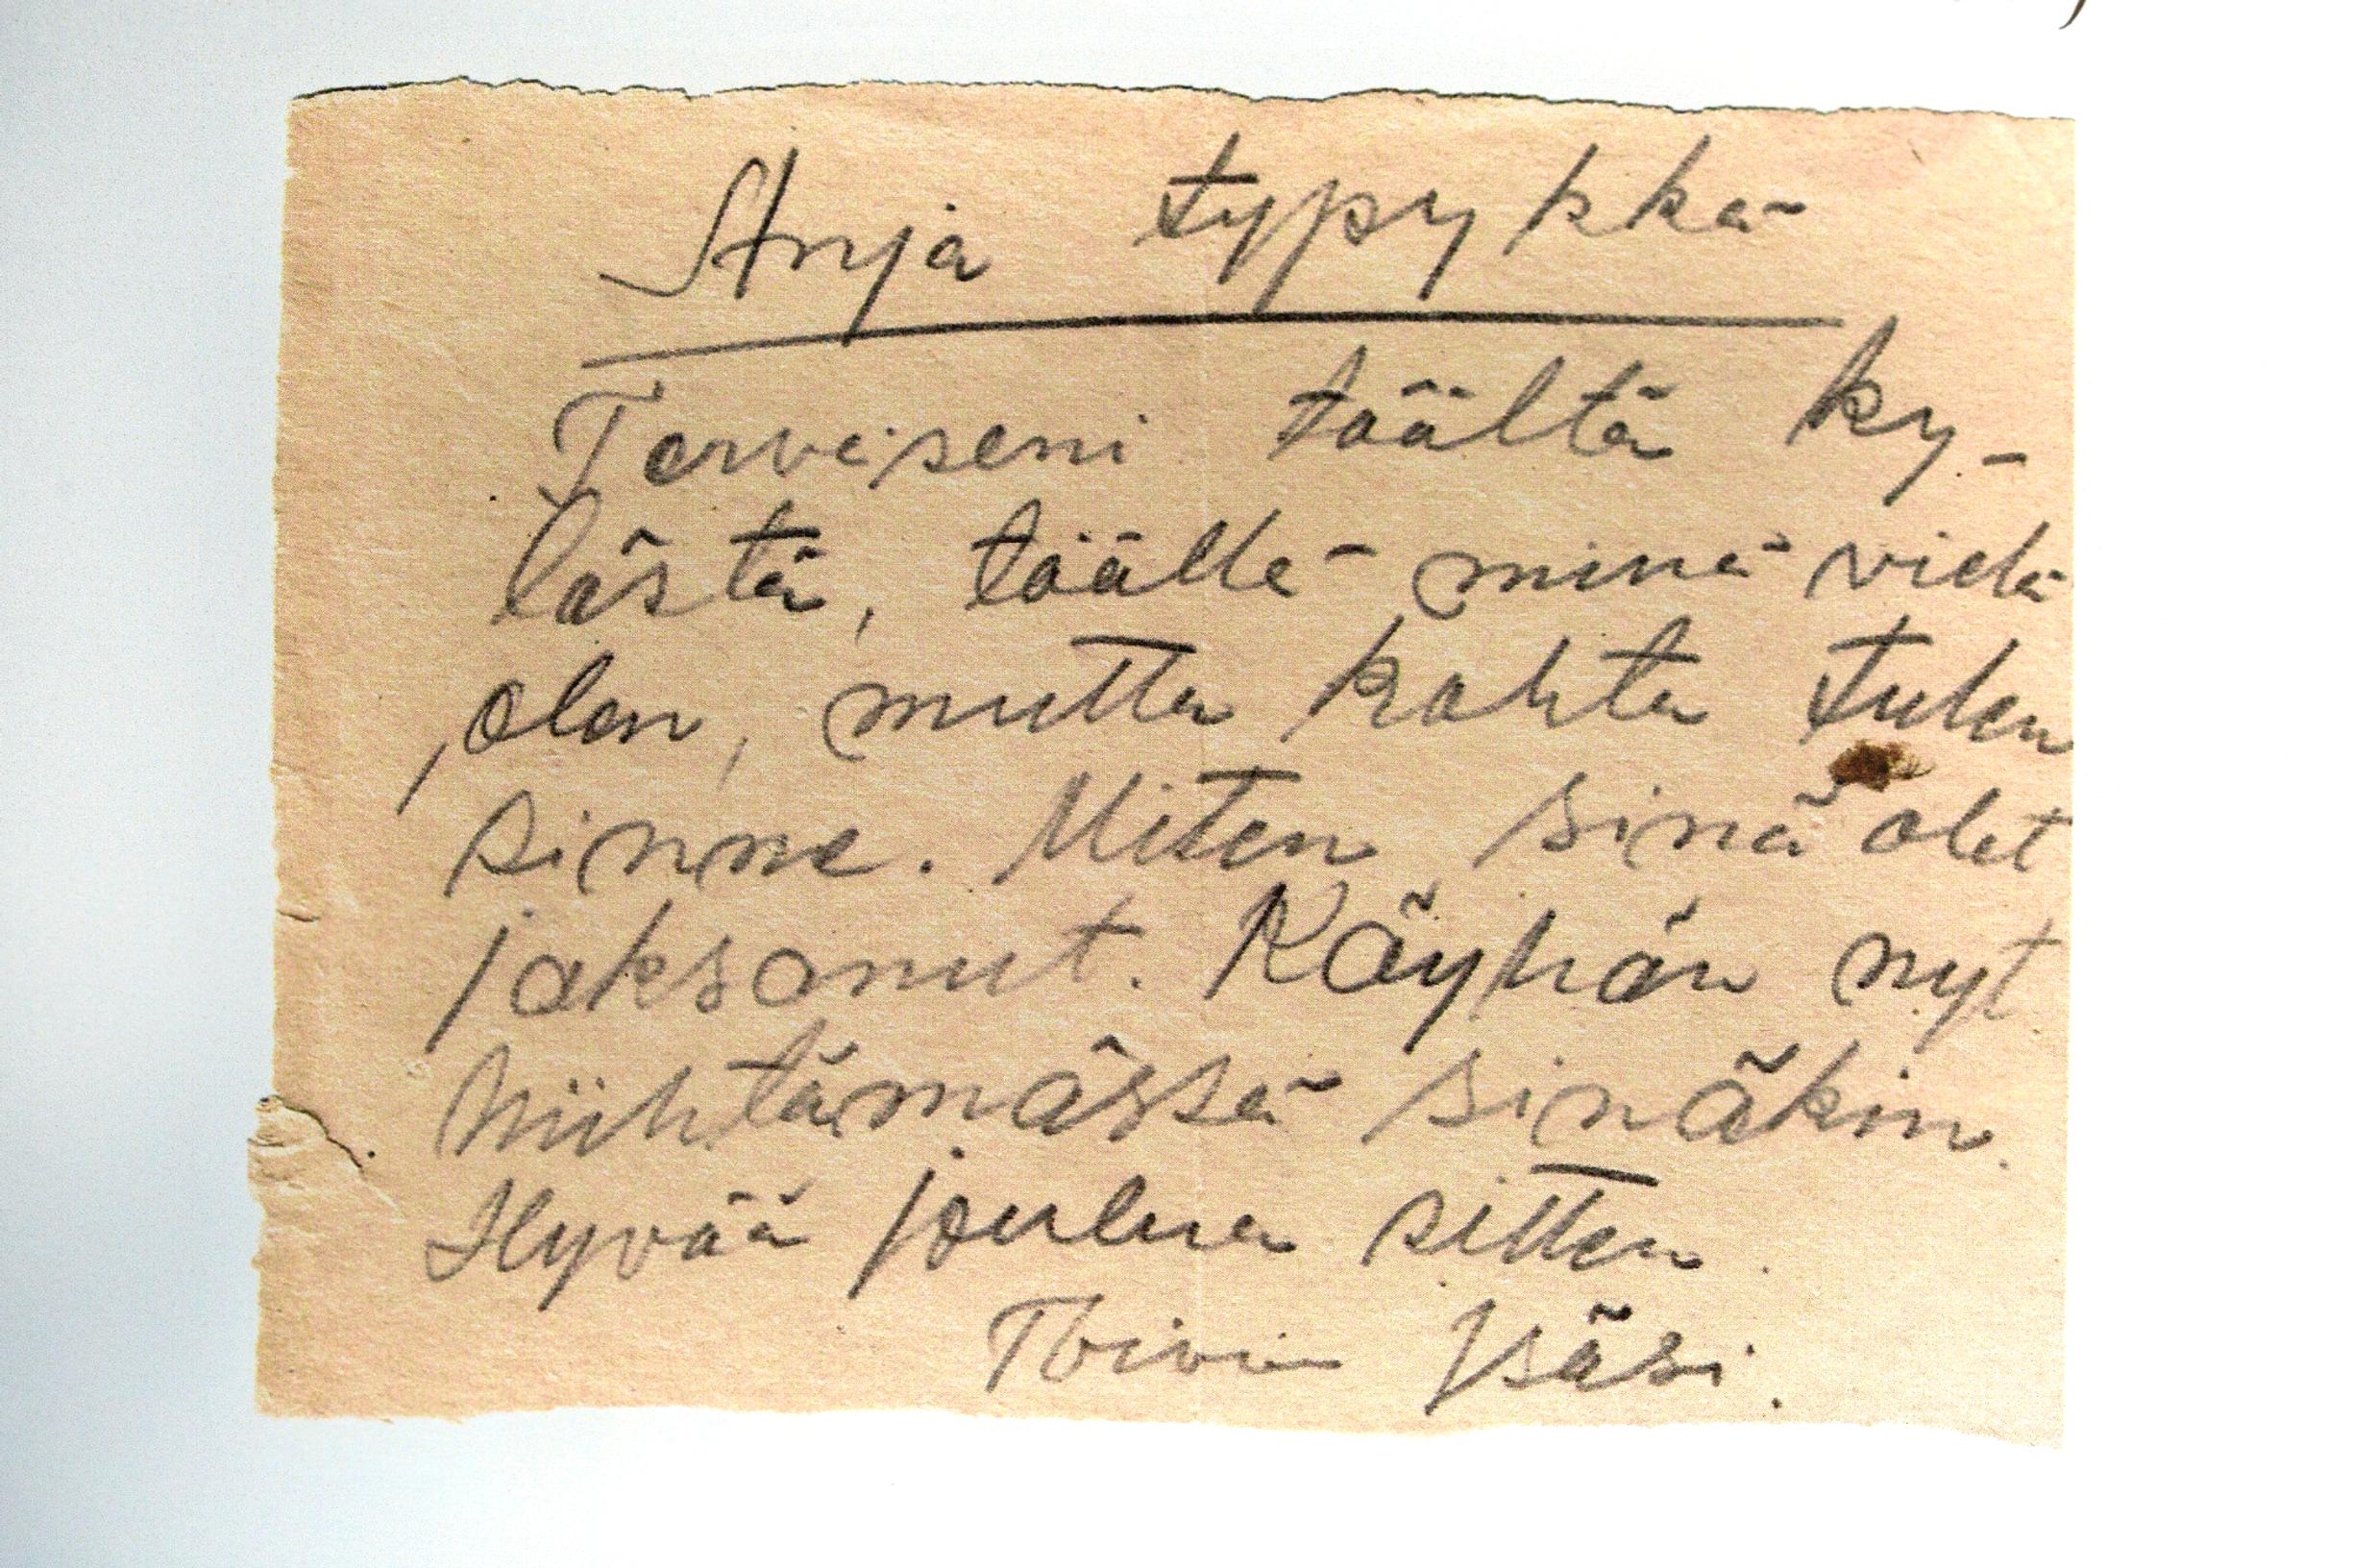 Anja typykkä
Terveiseni täältä ky-
lästä, täällä minä vielä
olen, mutta kohta tulen
sinne. Miten sinä olet
jaksanut. Käyhän nyt
hiihtämässä sinäkin.
Hyvää joulua sitten.
Toivoo Isäsi.